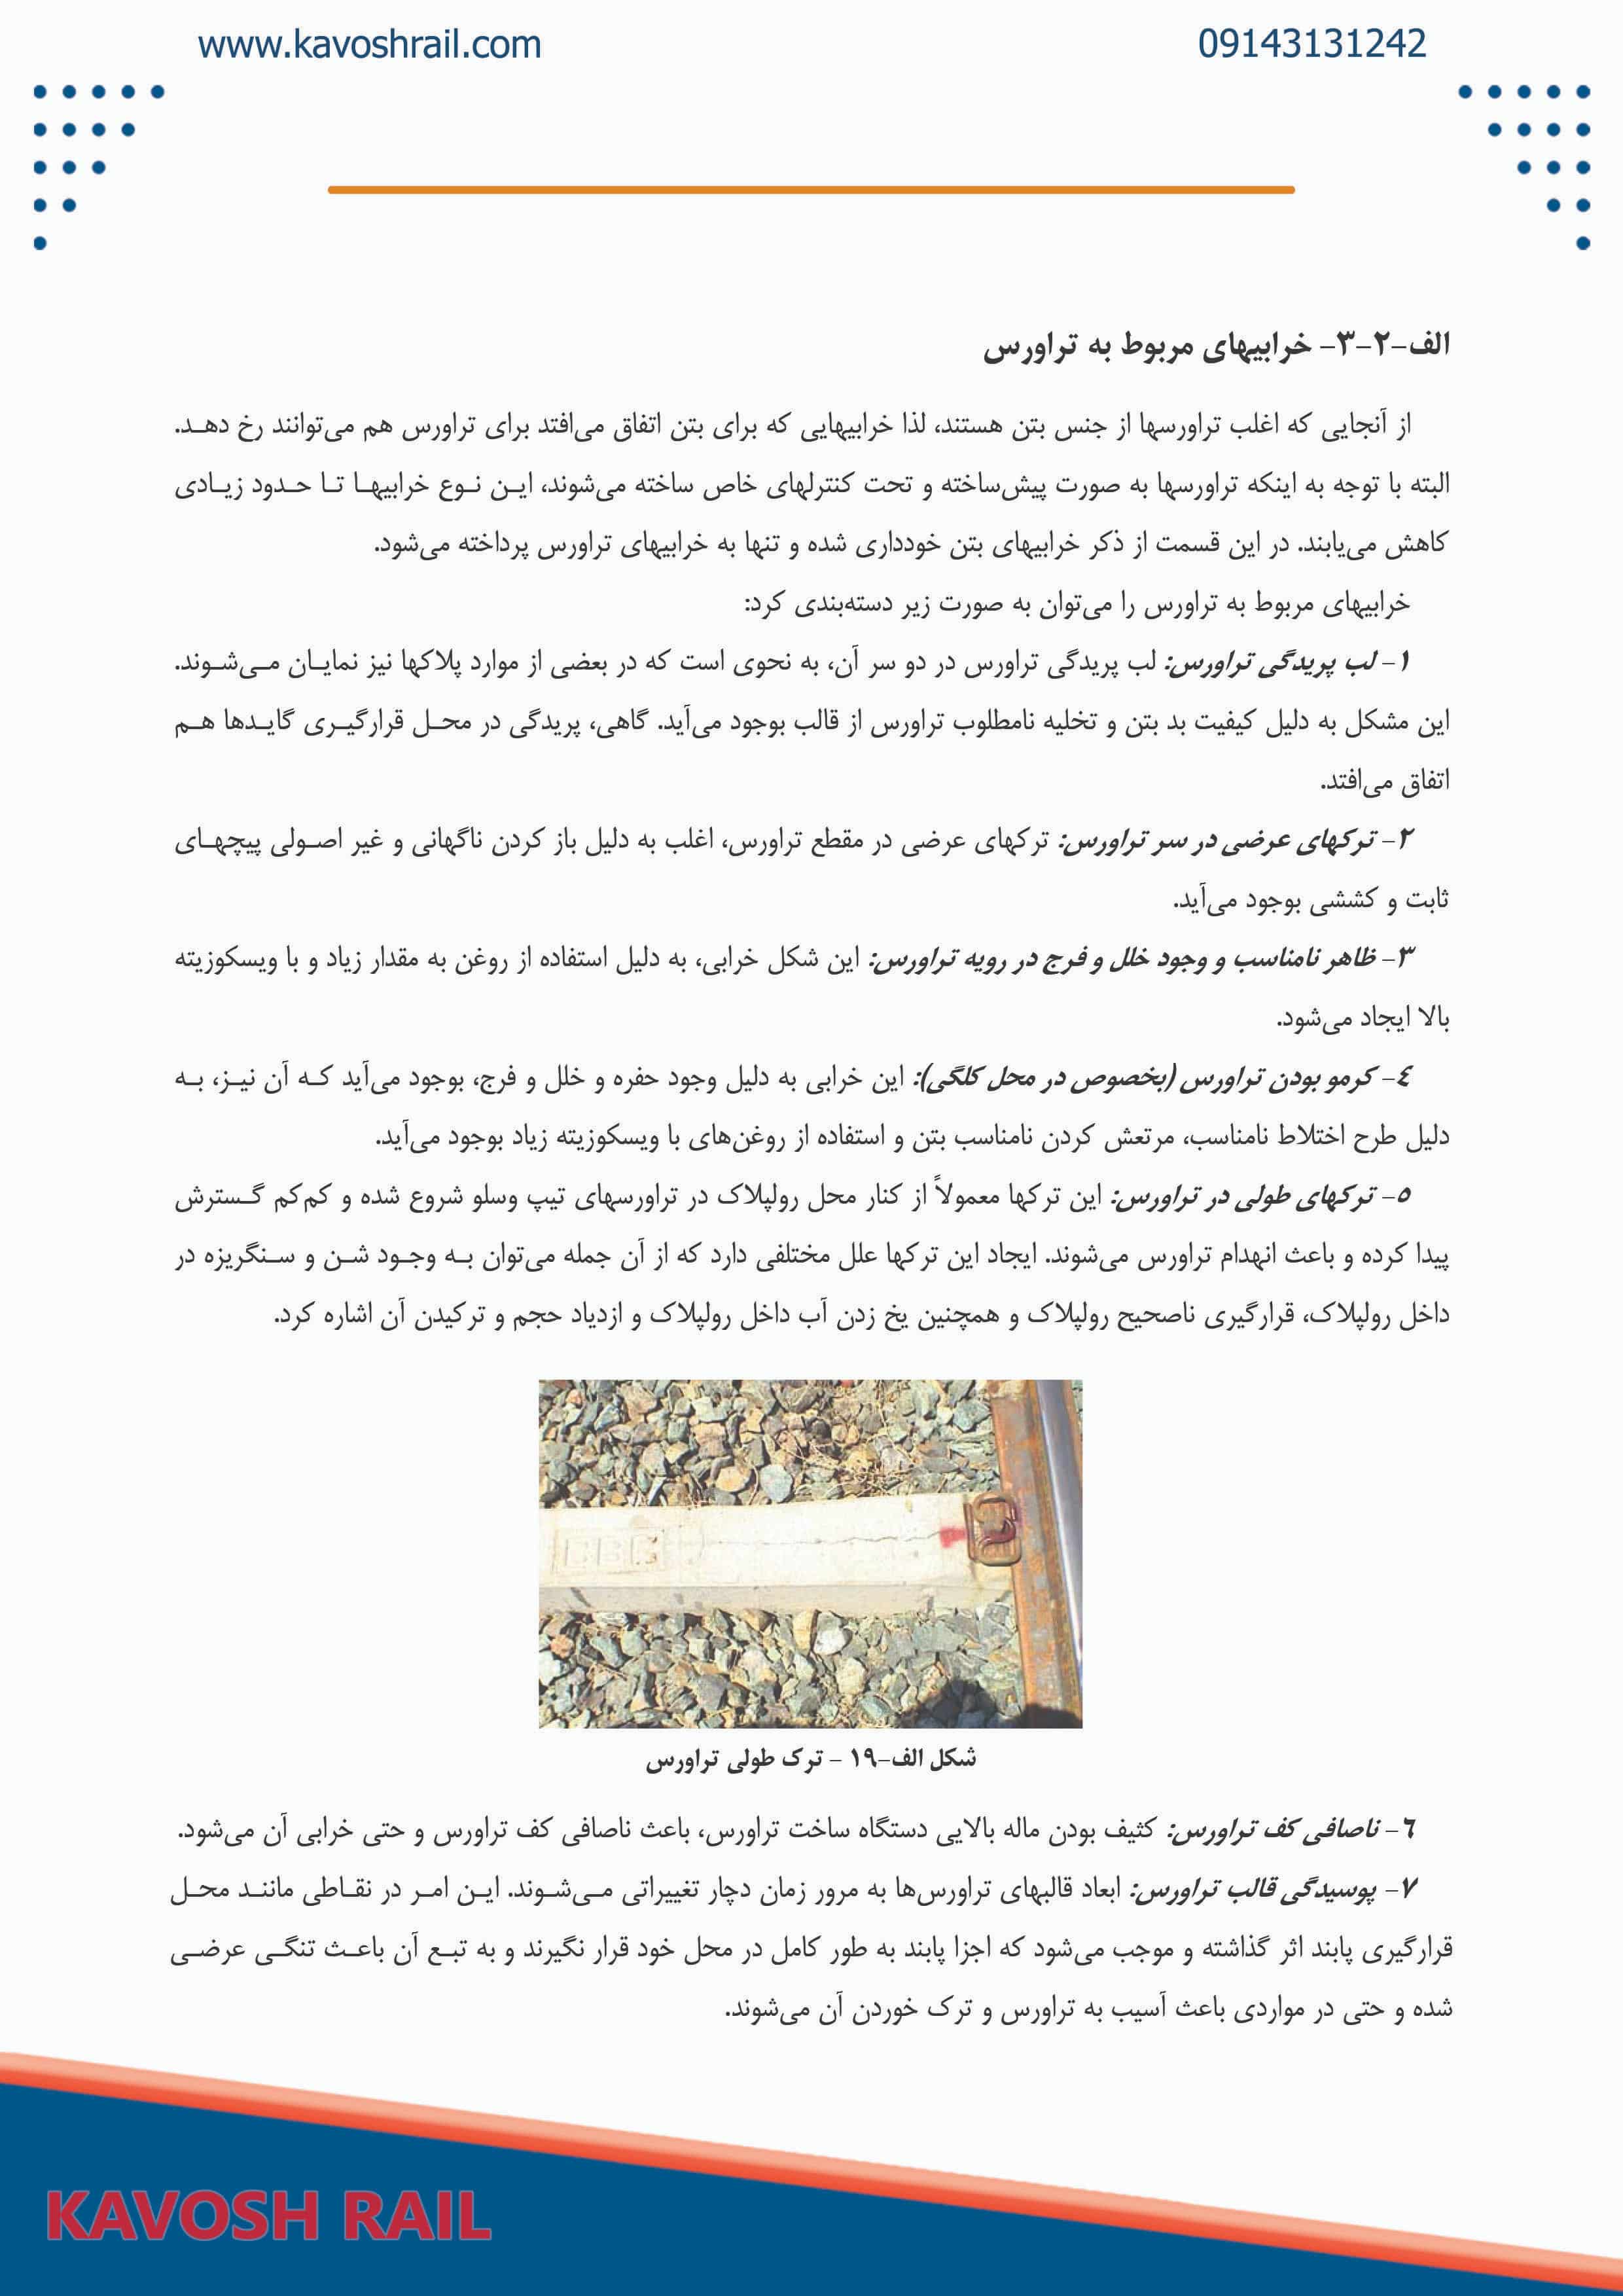 www.kavoshrail.com
09143131242
الف-۲-۳- خرابیهای مربوط به تراورس
از آنجایی که اغلب تراورسها از جنس بتن هستند، لذا خرابیهایی که برای بتن اتفاق می‌افتد برای تراورس هم می‌توانند رخ دهـد.
البته با توجه به اینکه تراورسها به صورت پیش‌ساخته و تحت کنترلهای خاص ساخته می‌شوند، ایـن نـوع خرابیهـا تـا حـدود زیـادی
کاهش می‌یابند. در این قسمت از ذکر خرابیهای بتن خودداری شده و تنها به خرابیهای تراورس پرداخته می‌شود.
خرابیهای مربوط به تراورس را می‌توان به صورت زیر دسته‌بندی کرد:
۱- لب پریدگی تراورس: لب پریدگی تراورس در دو سر آن، به نحوی است که در بعضی از موارد پلاکها نیز نمایـان مـی‌شـوند.
این مشکل به دلیل کیفیت بد بتن و تخلیه نامطلوب تراورس از قالب بوجود می‌آید. گاهی، پریدگی در محـل قرارگیـری گایـدها هـم
اتفاق می‌افتد.
۲- ترکهای عرضی در سر تراورس: ترکهای عرضی در مقطع تراورس، اغلب به دلیل باز کردن ناگهانی و غیر اصـولی پیچهـای
ثابت و کششی بوجود می‌آید.
۳- ظاهر نامناسب و وجود خلل و فرج در رویه تراورس: این شکل خرابی، به دلیل استفاده از روغن به مقدار زیاد و با ویسکوزیته
بالا ایجاد می‌شود.
٤- کرمو بودن تراورس (بخصوص در محل کلگی): این خرابی به دلیل وجود حفره و خلل و فرج، بوجود می‌آید کـه آن نیـز، بـه
دلیل طرح اختلاط نامناسب، مرتعش کردن نامناسب بتن و استفاده از روغن‌های با ویسکوزیته زیاد بوجود می‌آید.
٥- ترکهای طولی در تراورس: این ترکها معمولاً از کنار محل رولپلاک در تراورسهای تیپ وسلو شروع شده و کم‌کم گـسترش
پیدا کرده و باعث انهدام تراورس می‌شوند. ایجاد این ترکها علل مختلفی دارد که از آن جمله می‌توان بـه وجـود شـن و سـنگریزه در
داخل رولپلاک، قرارگیری ناصحیح رولپلاک و همچنین یخ زدن آب داخل رولپلاک و ازدیاد حجم و ترکیدن آن اشاره کرد.
شکل الف-۱۹ - ترک طولی تراورس
٦- ناصافی کف تراورس: کثیف بودن ماله بالایی دستگاه ساخت تراورس، باعث ناصافی کف تراورس و حتی خرابی آن می‌شود.
۷- پوسیدگی قالب تراورس: ابعاد قالبهای تراورس‌ها به مرور زمان دچار تغییراتی مـی‌شـوند. ایـن امـر در نقـاطی ماننـد محـل
قرارگیری پابند اثر گذاشته و موجب می‌شود که اجزا پابند به طور کامل در محل خود قرار نگیرند و به تبـع آن باعـث تنگـی عرضـی
شده و حتی در مواردی باعث آسیب به تراورس و ترک خوردن آن می‌شوند.
KAVOSH RAIL